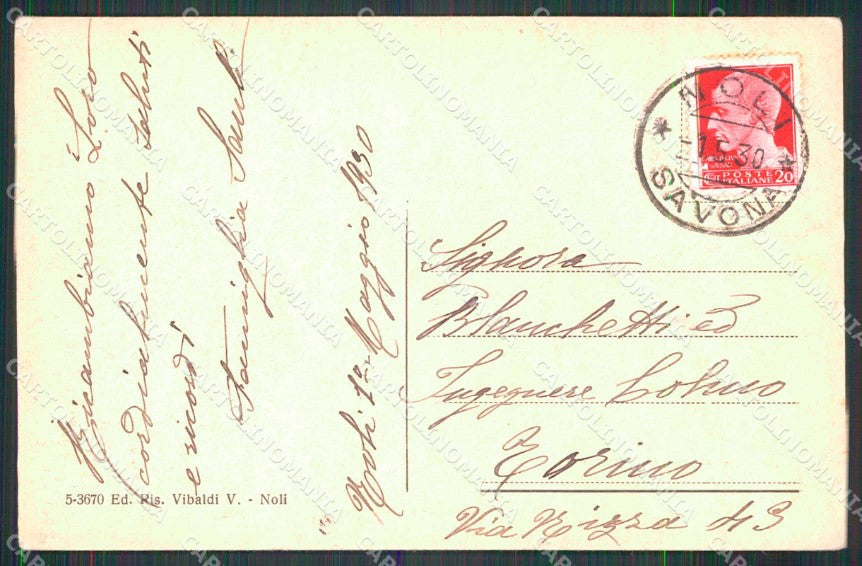 Ricambiamo Loro
cordialmente saluti
e ricordi
Famiglia
Noli 1º Maggio 1930
NOLI
1.5.30
SAVONA
POSTE
ITALIANE 20
Signora
Blanchetti ed
Ingegnere
Torino
Via Nizza 43
5-3670 Ed. Ris. Vibaldi V. - Noli
CARTOLINOMANIA